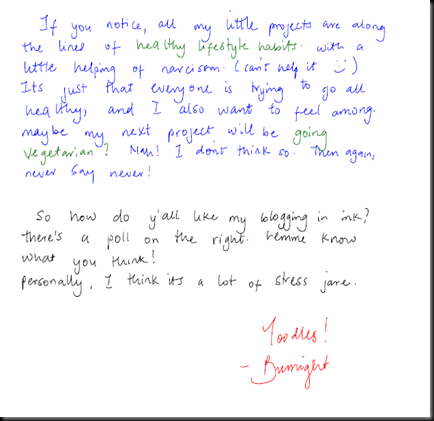 If you notice, all my little projects are along
the lines of healthy lifestyle habits. with a
little helping of narcism. (can't help it :))
Its just that everyone is trying to go all
healthy, and I also want to feel among.
maybe my next project will be going
vegetarian? Nah! I don't think so. Then again,
never say never!
So how do y'all like my blogging in ink?
There's a poll on the right. Lemme know
what you think!
personally, I think its a lot of stress jare.
Toodles!
- Bumight